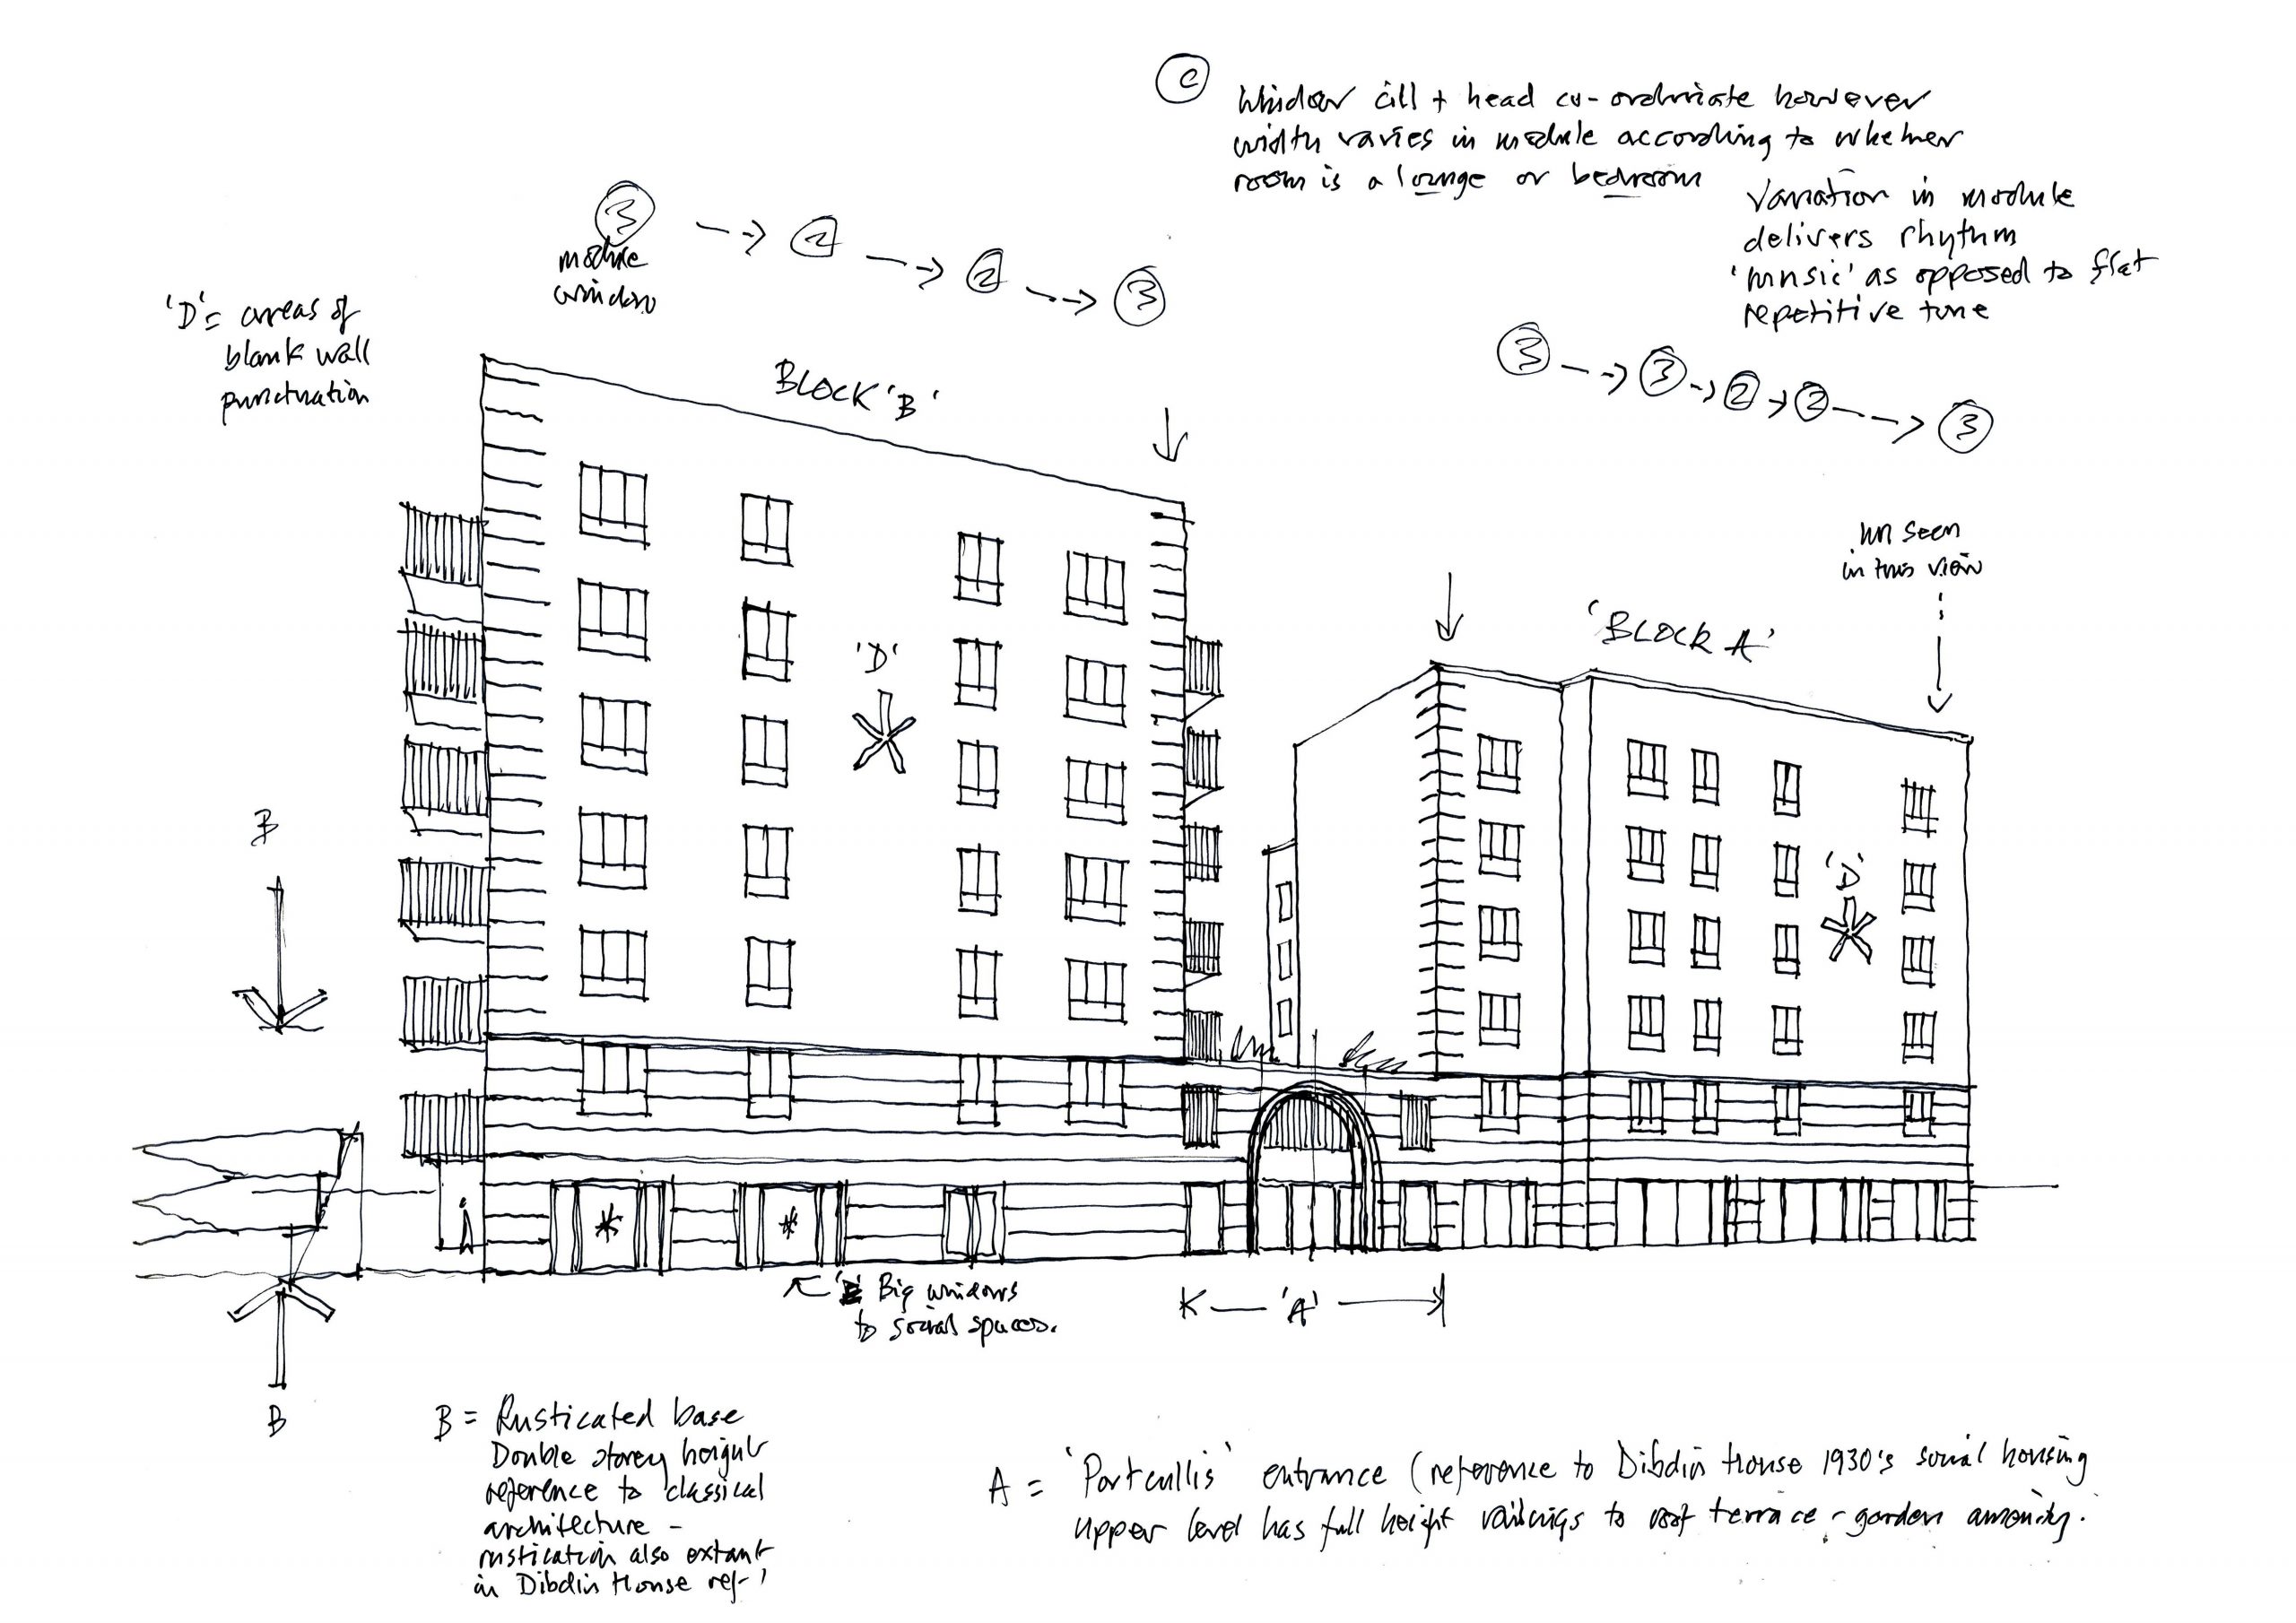 C
Window cill + head co-ordinate however
width varies in module according to whether
room is a lounge or bedroom
Variation in module
delivers rhythm
'music' as opposed to flat
repetitive tune
3 2 2 3
module
window
'D' = areas of
blank wall
punctuation
3 3 2 2 3
BLOCK 'B'
un seen
in this view
'BLOCK A'
'D'
'D'
B
'A'
Big windows
to social spaces.
B
B = Rusticated base
Double storey height
reference to classical
architecture -
rustication also extant
in Dibdin House ref-'
A = 'Portcullis' entrance (reference to Dibdin House 1930's social housing
upper level has full height railings to roof terrace - garden amenity.